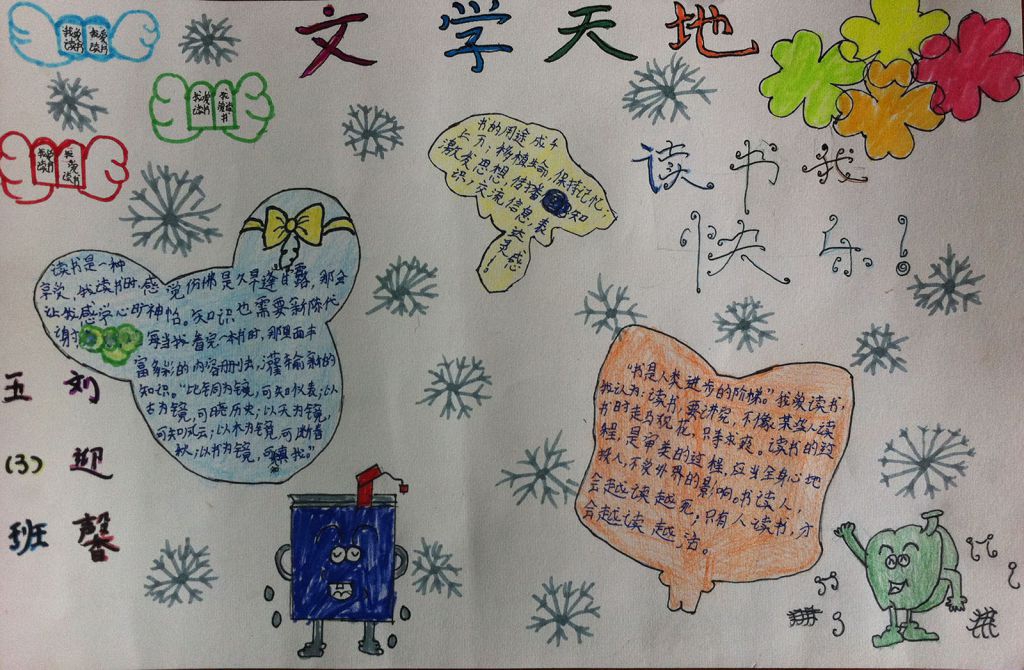 文学天地
我爱读书
我爱读书
我爱读书
我爱读书
我爱读书
我爱读书
读书我
快乐！
书的用途成千
上万，杨榜生命，保持记忆；
激发思想，传播知
识，交流信息，表
达
灵感
！
读书是一种
享受，我读书时，感觉仿佛是久旱逢甘露，那会
让我感觉心旷神怡。知识也需要新陈代
谢，每当我看完一本书时，那里面丰
富多彩的内容
知识。“以铜为镜，可知仪表；以
古为镜，可晓历史；以天为镜，
可知风云；以木为镜，可断春
秋；以书为镜，可填我。”
“书是人类进步的阶梯。”我爱读书，
我认为：读书，要讲究，不像某些人读
书时走马观花，只求求获。读书的过
程，是审美的过程，应当全身心地
投入，不受外界的影响。书读人，
会越读越死；只有人读书，才
会越读越活。
五 刘
(3) 迎
班 馨